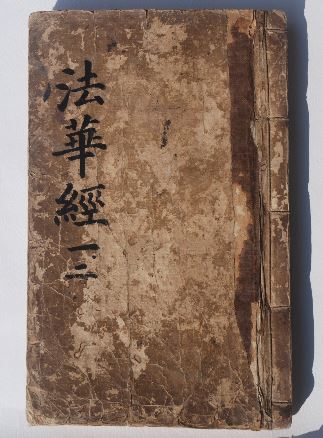 法華經一二